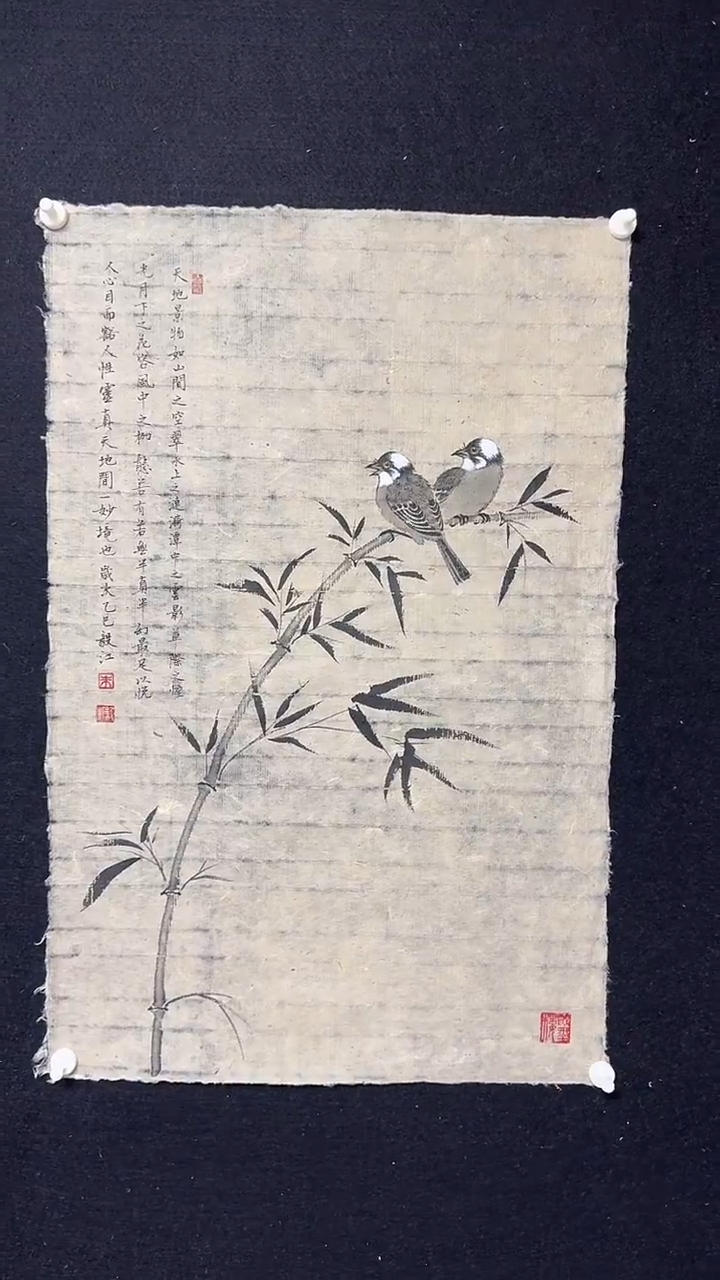 天地景物如山間之空翠水上之漣漪潭中之雲影草際之煙
光月下之花容風中之柳態若有若無半真半幻最足以悅
人心目而豁人性靈真天地間一妙境也歲次乙巳毅江
朱